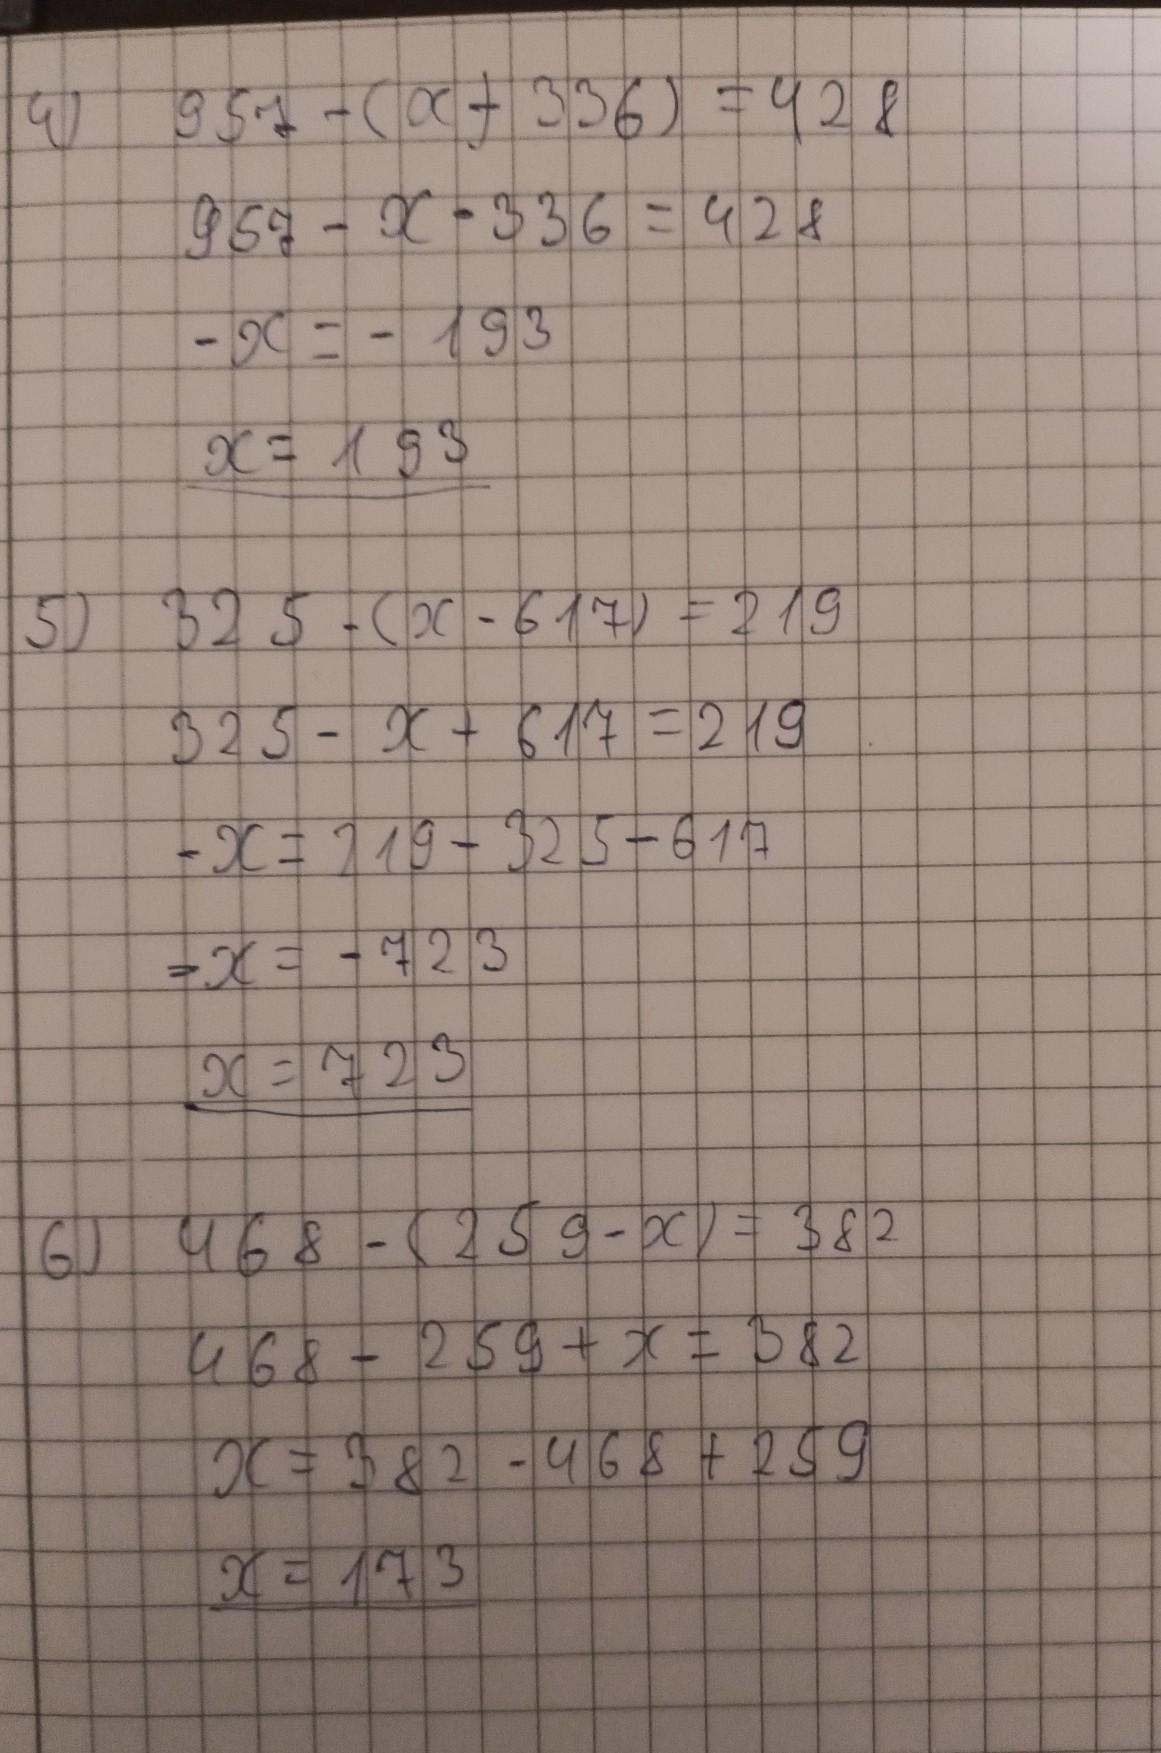 4) 957 - (x + 336) = 428
957 - x - 336 = 428
-x = - 193
x = 193
5) 325 - (x - 617) = 219
325 - x + 617 = 219
-x = 219 - 325 - 617
-x = - 723
x = 723
6) 468 - (259 - x) = 382
468 - 259 + x = 382
x = 382 - 468 + 259
x = 173